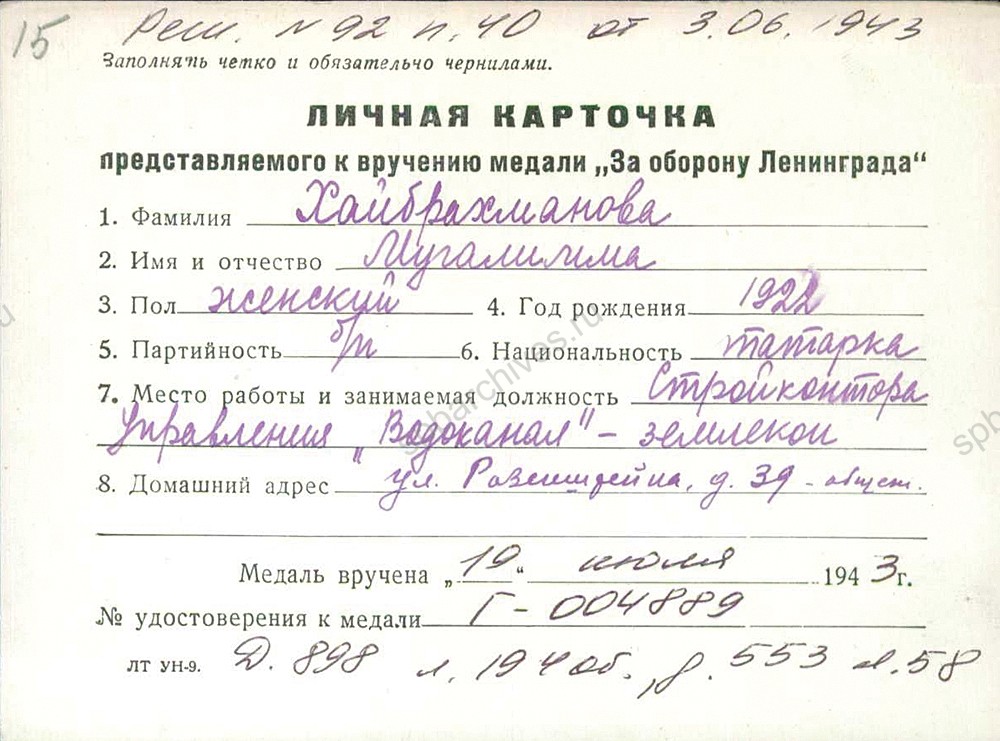 15 Реш. №92 п. 40 от 3.06.1943
Заполнять четко и обязательно чернилами.
ЛИЧНАЯ КАРТОЧКА
представляемого к вручению медали „За оборону Ленинграда“
1. Фамилия Хайбрахманова
2. Имя и отчество Мугалима
3. Пол женский 4. Год рождения 1922
5. Партийность б/п 6. Национальность татарка
7. Место работы и занимаемая должность Стройконтора
Управления „Водоканал" – землекоп
8. Домашний адрес ул. Розенштейна, д. 39 – общеж.
Медаль вручена „19“ июля 1943 г.
№ удостоверения к медали Г-004889
ЛТ УН-9. Д. 898 л. 194 об., д. 553 л. 58
spbarchives.ru